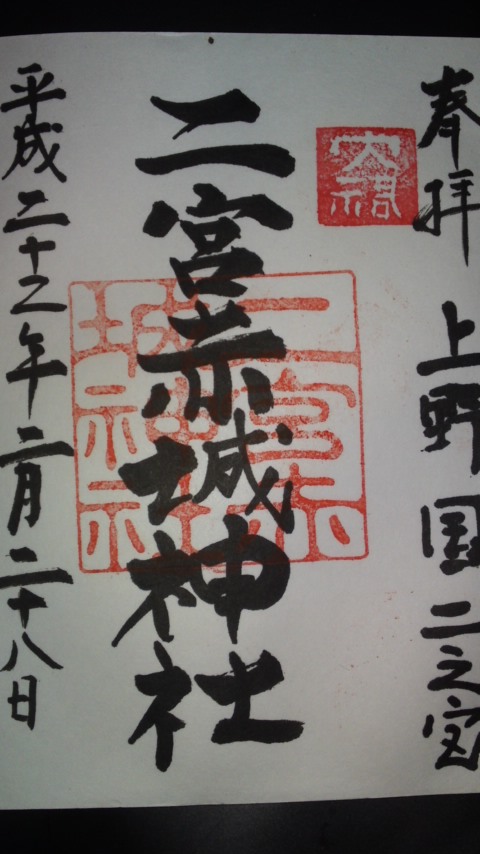 奉拝 上野国二之宮
二宮赤城神社
平成二十二年二月二十八日
二宮赤城神社